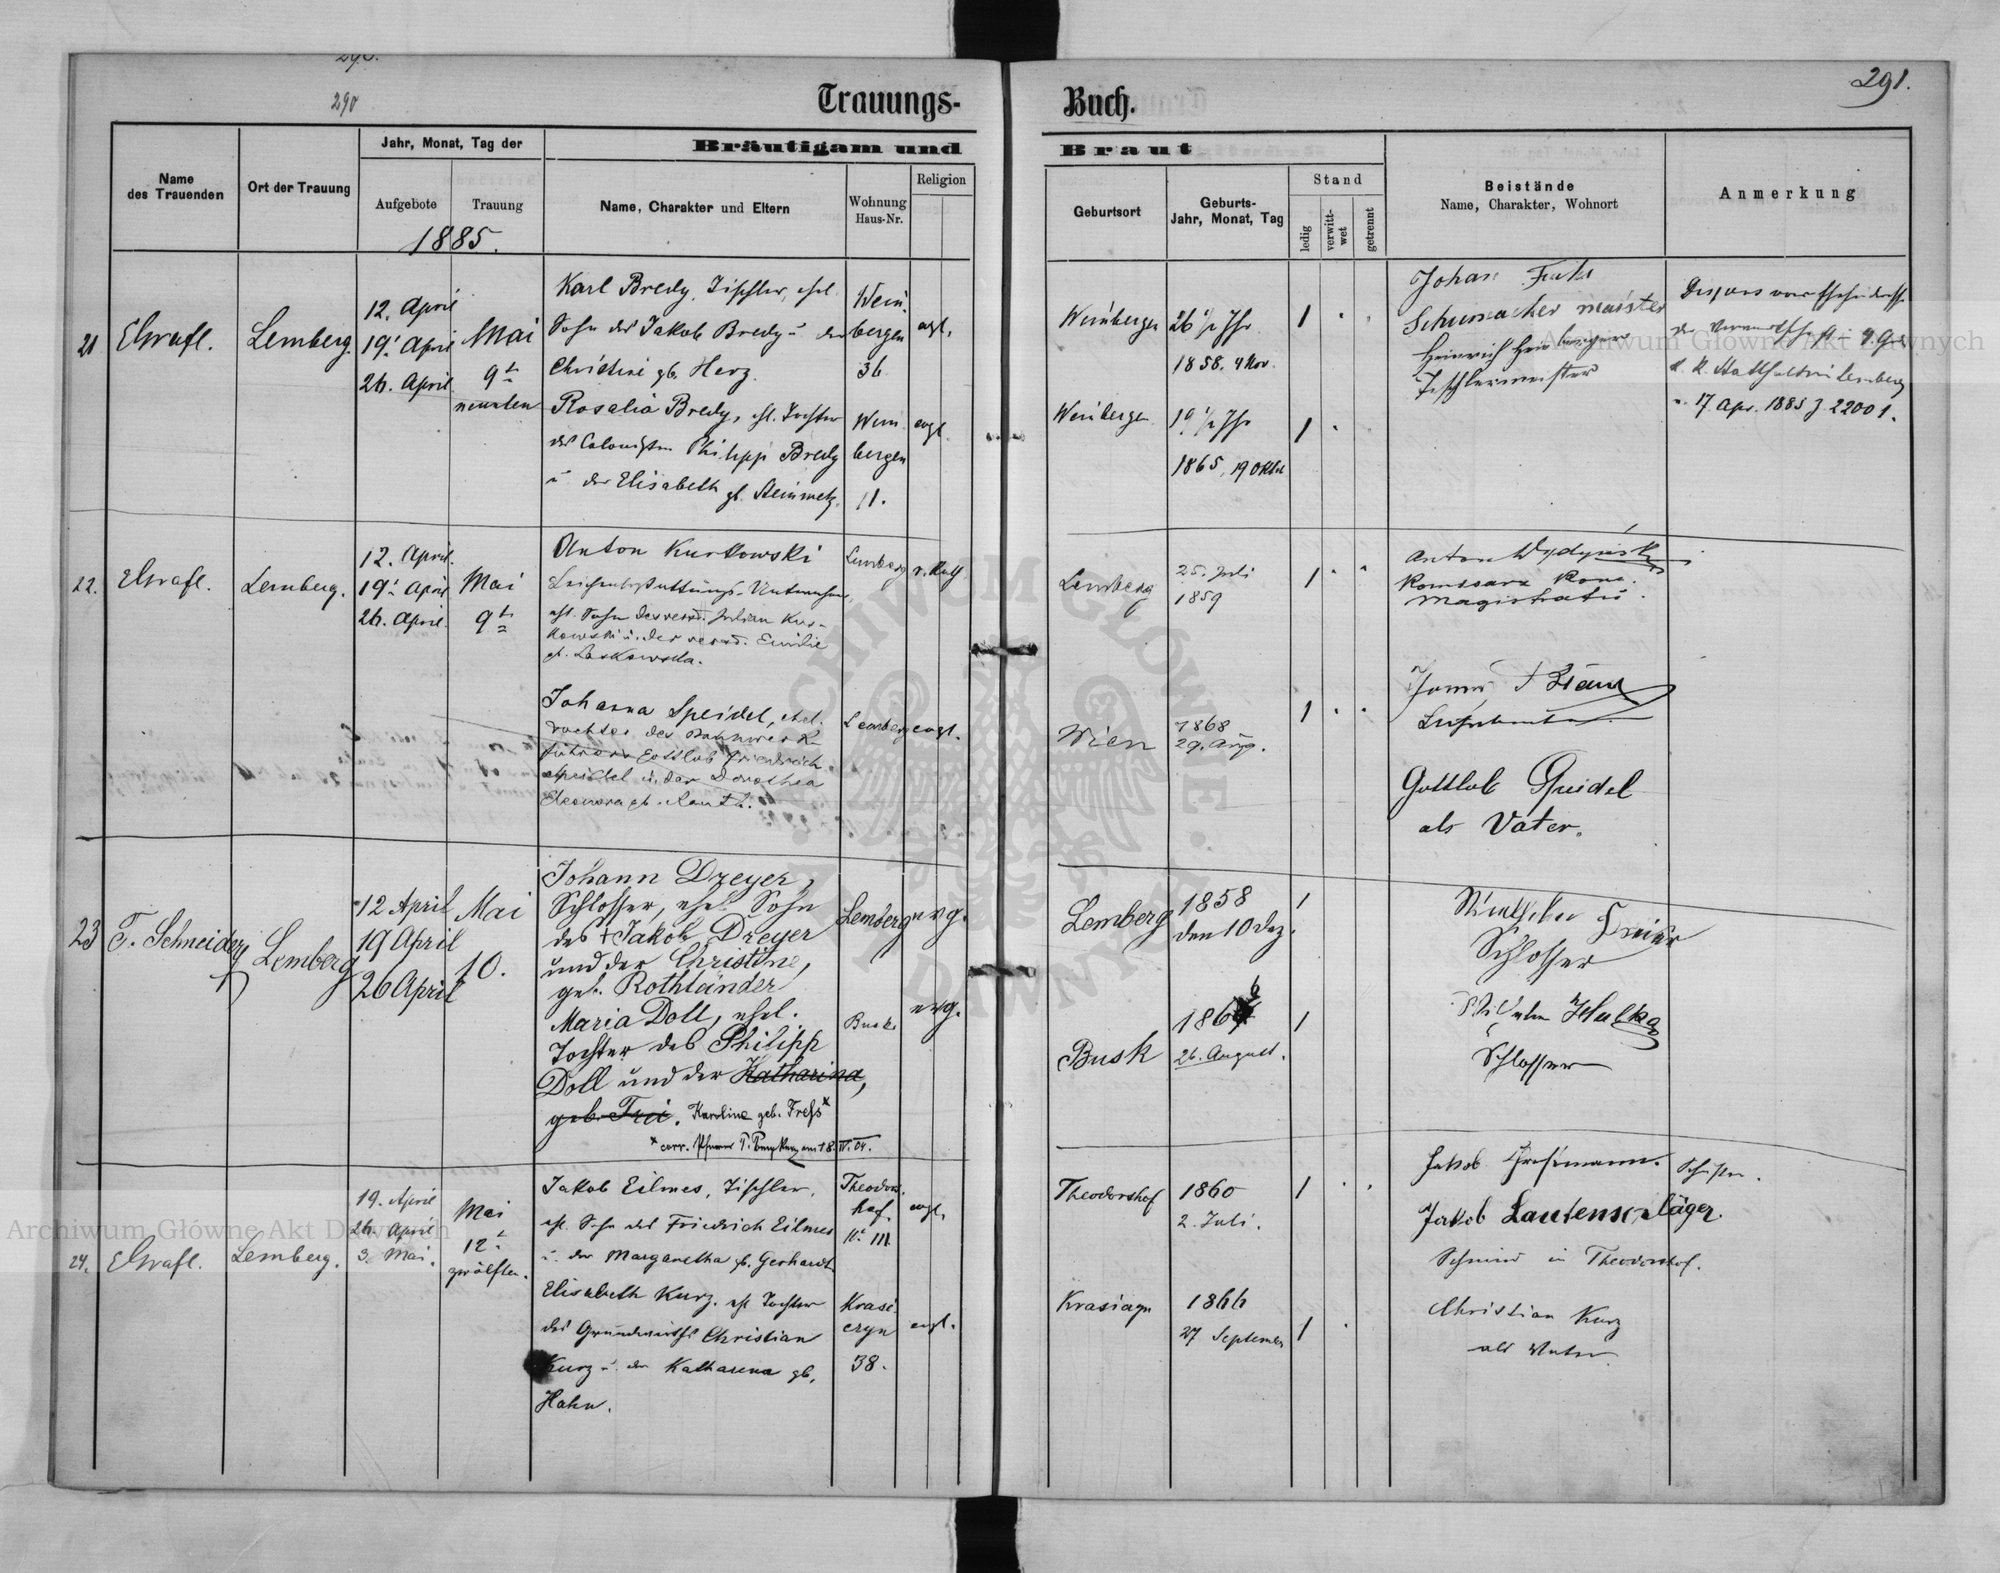 290.
290
Trauungs-
Buch.
291.
Name
des Trauenden
Ort der Trauung
Jahr, Monat, Tag der
Aufgebote
Trauung
1885.
Bräutigam und
Name, Charakter und Eltern
Wohnung
Haus-Nr.
Religion
Braut
Geburtsort
Geburts-
Jahr, Monat, Tag
Stand
ledig
verwitt-
wet
getrennt
Beistände
Name, Charakter, Wohnort
Anmerkung
21
EGrafl.
Lemberg.
12. April
19. April
26. April
Mai
9t
neunten
Karl Bredy, Tischler, ehel.
Sohn des Jakob Bredy u. der
Christine gb. Herz.
Wein-
bergen
36
evgl.
Rosalia Bredy, ehl. Tochter
des Colonisten Philipp Bredy
u der Elisabeth gb. Steinmetz.
Wein
bergen
11.
evgl.
Weinbergen
26 1/2 Jhr.
1858. 4 Nov.
1
Weinbergen
19 1/2 Jhr
1865, 19 Oktob
1
Johan
Schumacher maister
Heinrich
Tischlermeister
Dispens vom
der Verwandtschaft
k. k. Statthalterei Lemberg
v. 17. Apr. 1885 Z 22001.
22.
EGrafl.
Lemberg.
12. April.
19. April
26. April.
Mai
9t
Anton Kurkowski
Leichenbestattungs-Unternehmer,
ehl. Sohn des verst. Julian Kur-
kowski u. der verst. Emilie
gb. Laskowska.
Lemberg
r. kath
Johanna Speidel, ehel.
Tochter des Bahnwerk-
führers Gottlob Friedrich
Speidel u. der Dorothea
Eleonora gb.
Lemberg
evgl.
Lemberg
25. Juli
1859
1
Wien
1868
29. Aug.
1
Anton
Komisarz
Magistratu.
Gottlob Speidel
als Vater.
23
T. Schneider
Lemberg
12 April
19 April
26 April
Mai
10.
Johann Dreyer,
Schlosser, ehel. Sohn
des † Jakob Dreyer
und der Christine,
geb. Rothländer
Lemberg
evg.
Maria Doll, ehel.
Tochter des Philipp
Doll und der Katharina,
geb. Frei. Karoline geb. Fress*
* corr. Pfarrer am 18. IV. 04.
Busk.
evg.
Lemberg
1858
den 10 Dez.
1
Busk
1866
26. August.
1
Schlosser
Wilhelm
Schlosser
24.
EGrafl.
Lemberg.
19. April
26. April
3. Mai.
Mai
12t
zwölften.
Jakob Eilmes, Tischler,
ehl. Sohn des Friedrich Eilmes
u. der Margaretha gb. Gerhardt
Theodors-
hof.
N. III.
evgl.
Elisabeth Kurz. ehl Tochter
des Grundwirths Christian
Kurz u. der Katharina gb.
Hahn.
Krasi-
czyn
38.
evgl.
Theodorshof
1860
2. Juli.
1
Krasiczyn
1866
27 September
1
Jakob
Jakob Lautenschläger.
Schmied in Theodorshof.
Christian Kurz
als Vater.
Archiwum Główne Akt Dawnych
Archiwum Główne Akt Dawnych
ARCHIWUM GŁÓWNE AKT DAWNYCH